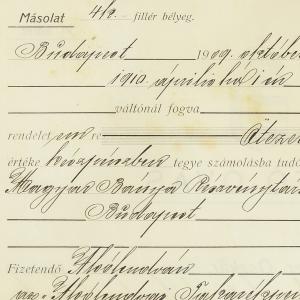 Másolat 4 k. – fillér bélyeg.
Budapest 1909 október
1910 április hó 1 én
váltónál fogva
rendelet re
értéke készpénzben tegye számolásba tudó
Magyar Bánya Részvénytár
Budapest
Fizetendő Alsólendván
Alsólendvai Takarékpé